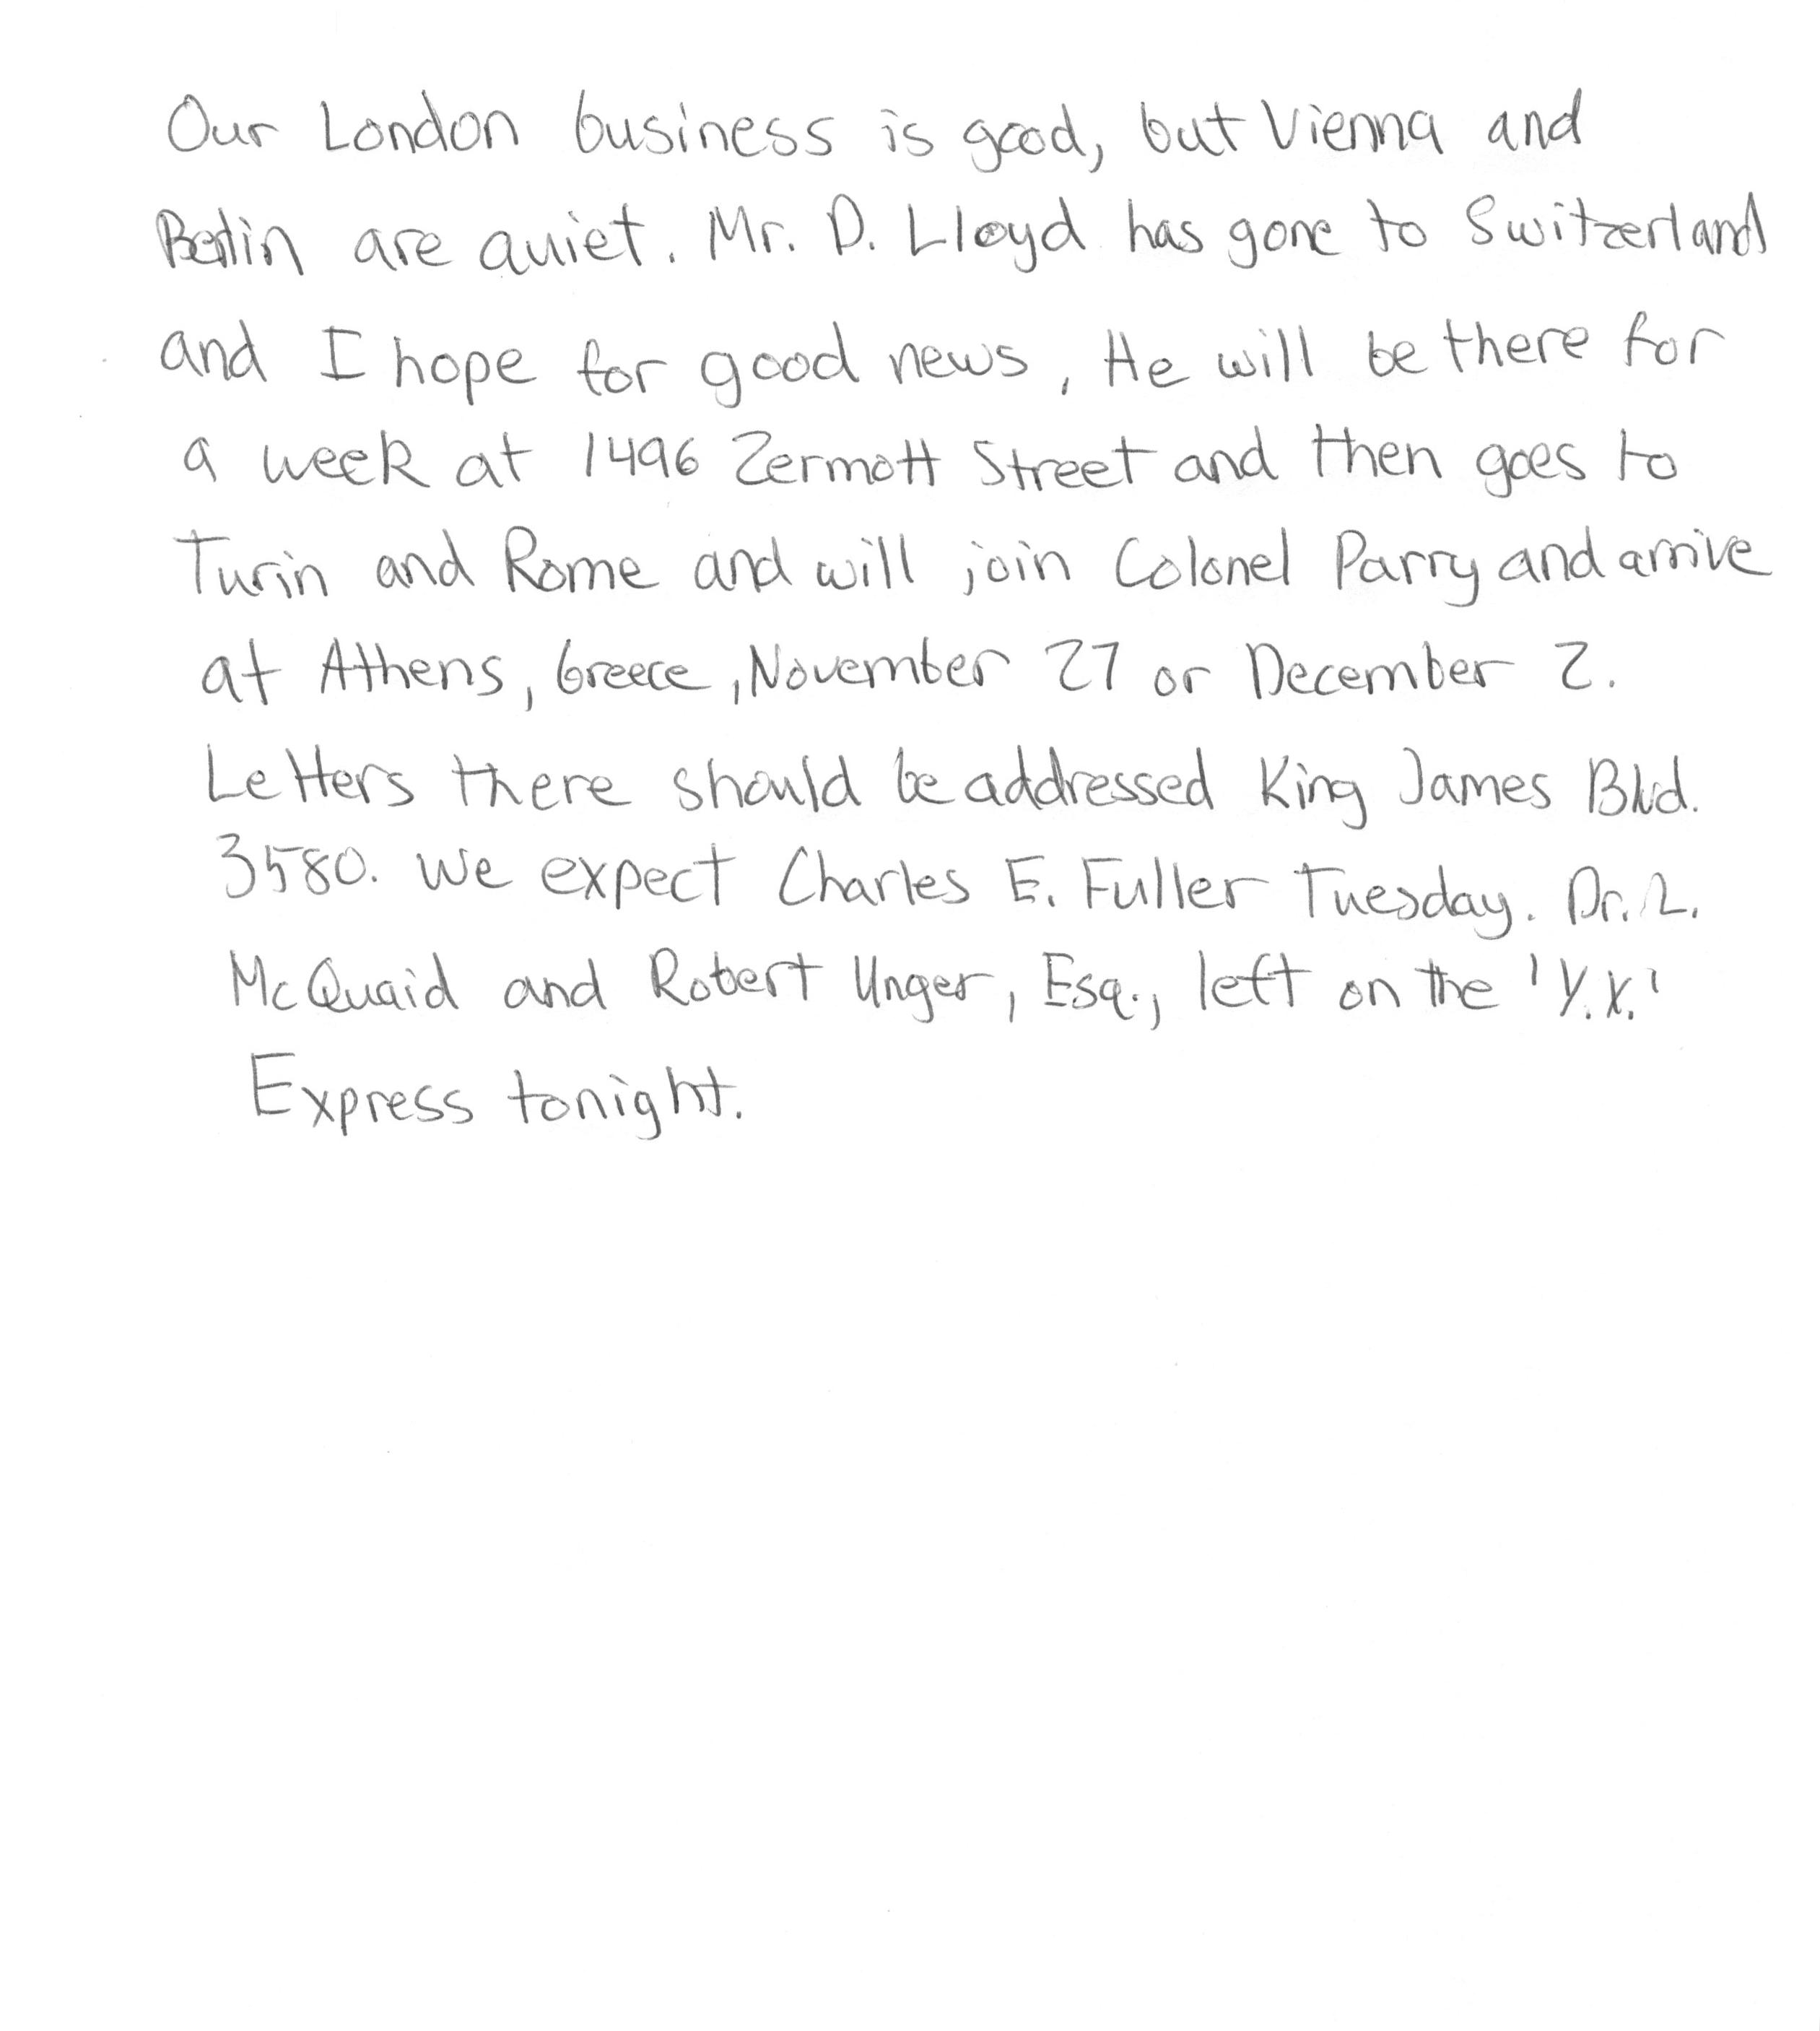 Our London business is good, but Vienna and
Berlin are quiet. Mr. D. Lloyd has gone to Switzerland
and I hope for good news. He will be there for
a week at 1496 Zermott Street and then goes to
Turin and Rome and will join Colonel Parry and arrive
at Athens, Greece, November 27 or December 2.
Letters there should be addressed King James Blvd.
3580. We expect Charles E. Fuller Tuesday. Dr. L.
McQuaid and Robert Unger, Esq., left on the 'Y.X.'
Express tonight.